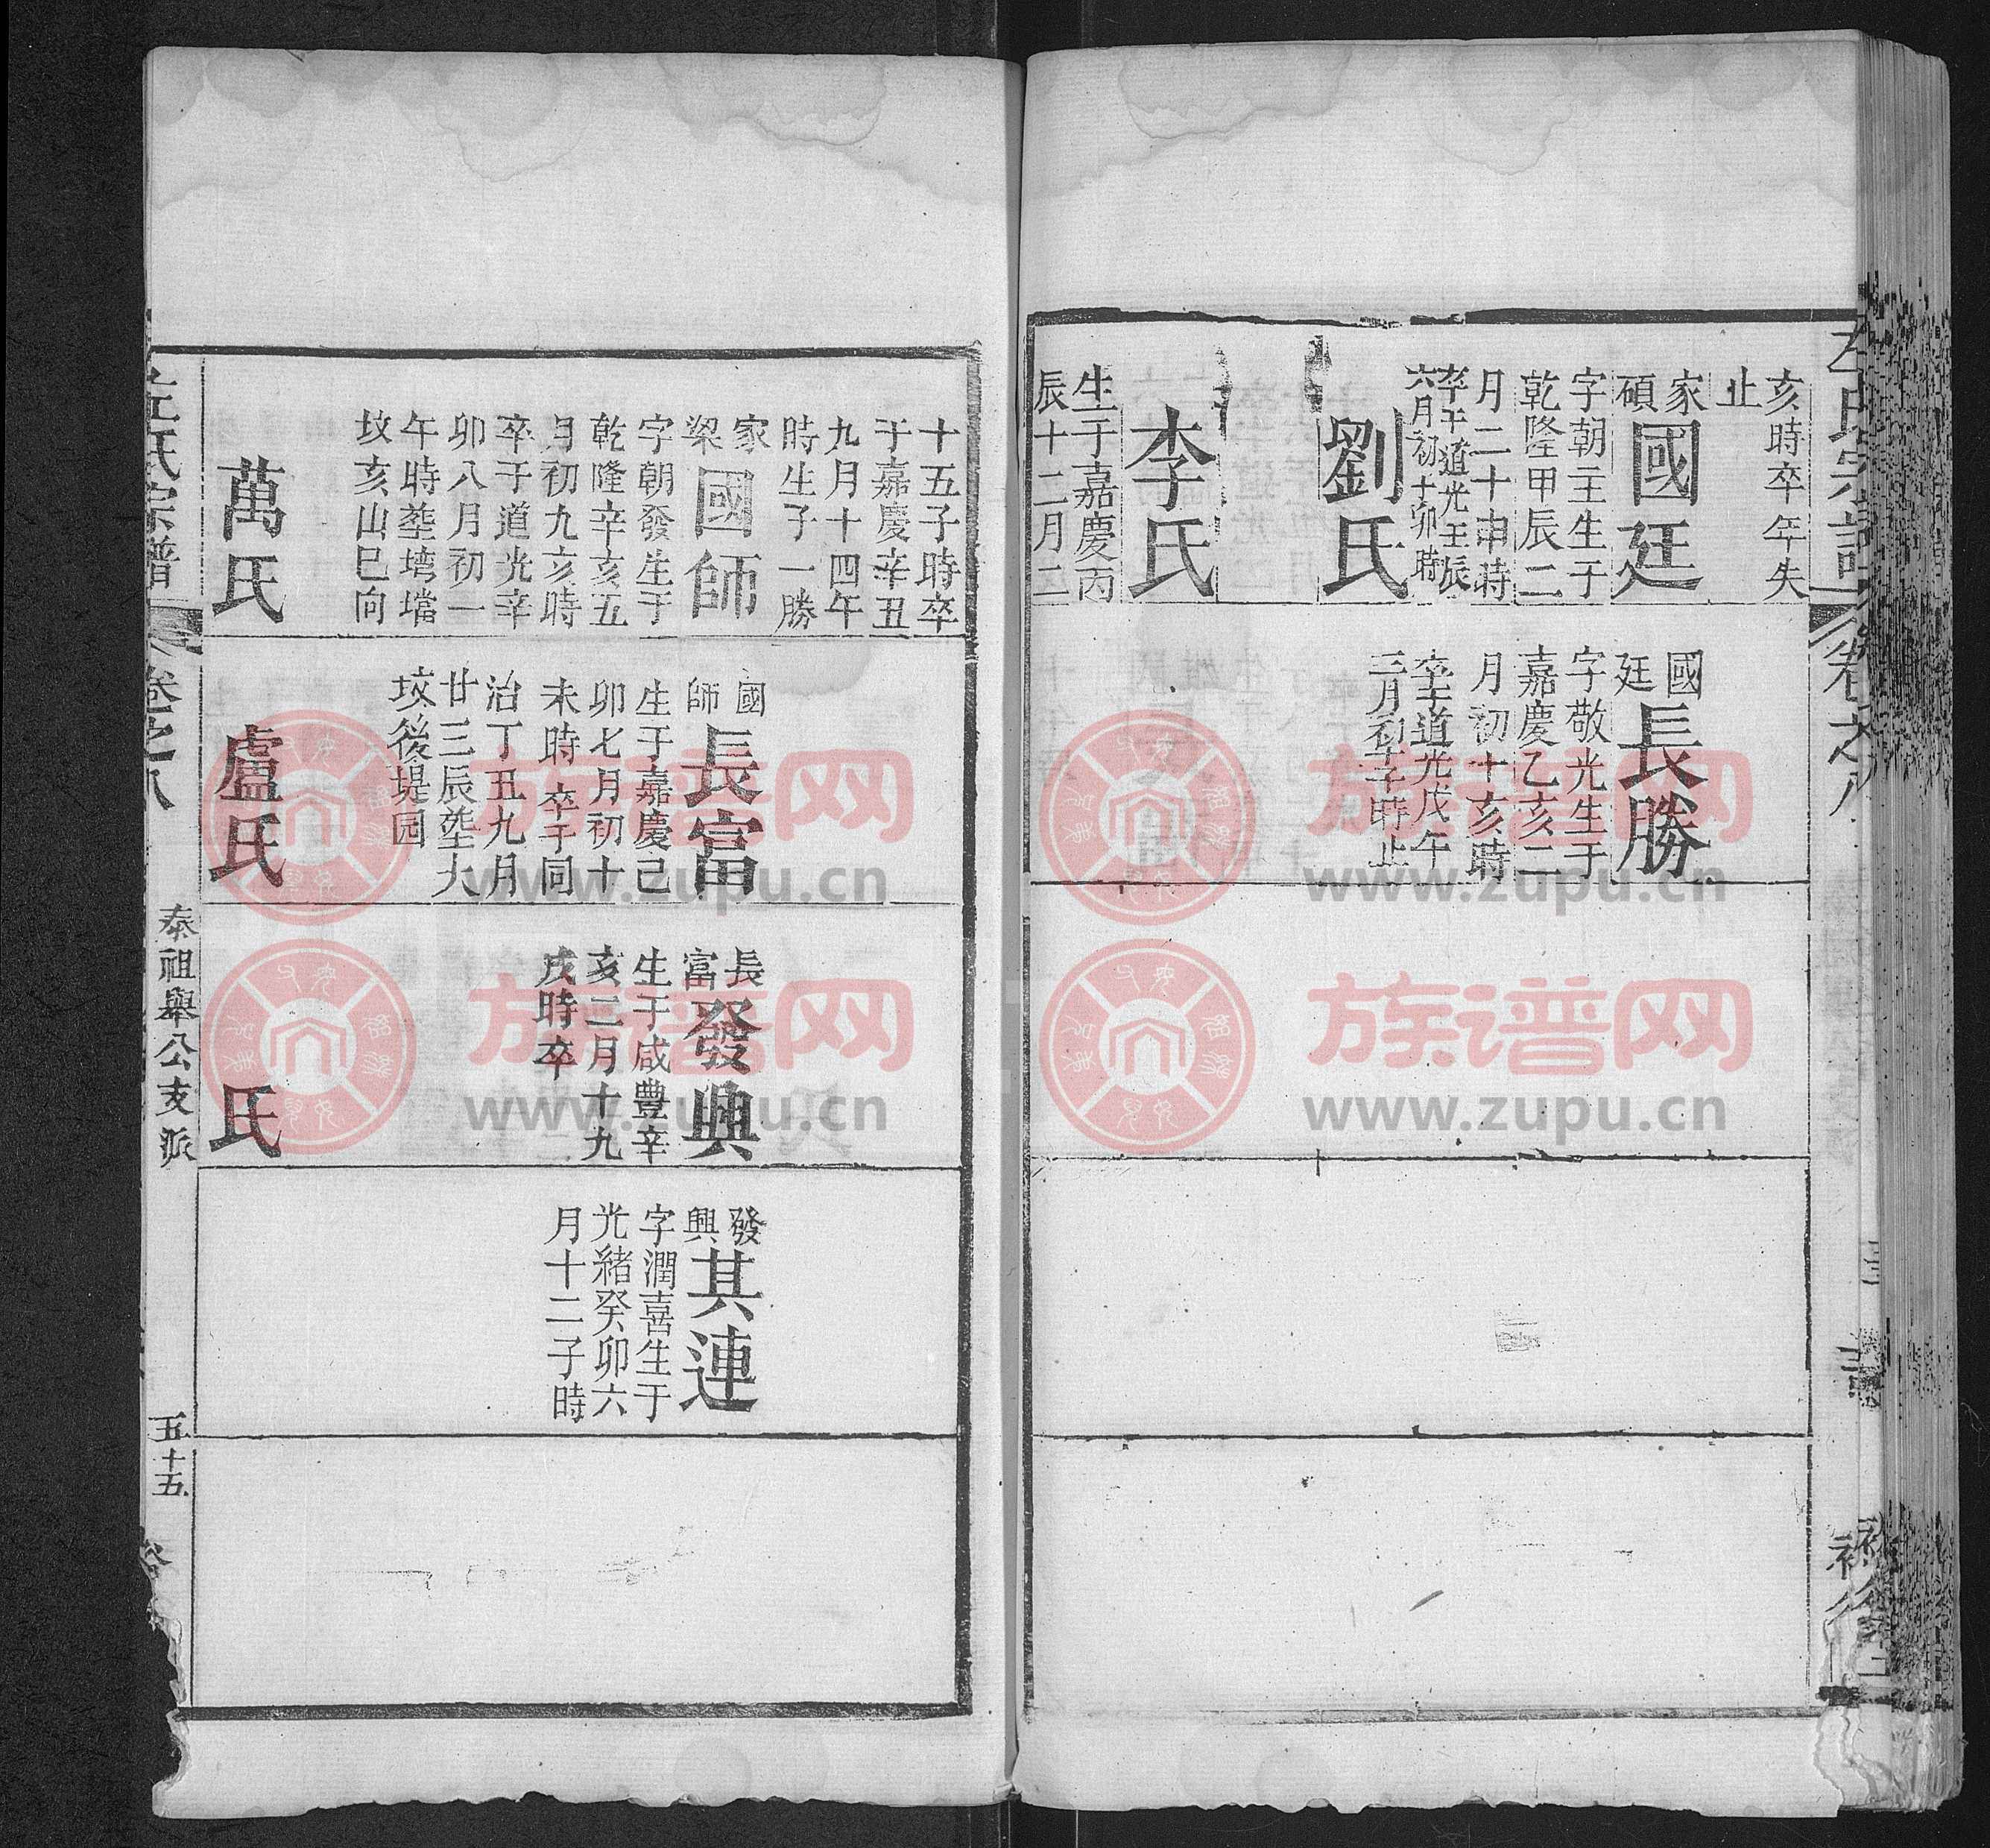 亥時卒年失
止
家
碩
國廷
字朝主生于
乾隆甲辰二
月二十申時
卒于道光壬辰
六月初十卯時
劉氏
李氏
生于嘉慶丙
辰十二月二
國
廷
長勝
字敬光生于
嘉慶乙亥二
月初十亥時
卒于道光戊午
三月初十子時止
卷之八
十五子時卒
于嘉慶辛丑
九月十四午
時生子一勝
家
梁
國師
字朝發生于
乾隆辛亥五
月初九亥時
卒于道光辛
卯八月初一
午時塟塆壋
坟亥山巳向
萬氏
國
師
長富
生于嘉慶己
卯七月初十
未時卒于同
治丁丑九月
廿三辰塟大
坟後堤园
盧氏
長
富
發興
生于咸豊辛
亥二月十九
戌時卒
氏
發
興
其連
字潤喜生于
光緒癸卯六
月十二子時
左氏宗譜
卷之八
泰祖舉公支派
五十五
族谱网
www.zupu.cn
族谱网
www.zupu.cn
族谱网
www.zupu.cn
族谱网
www.zupu.cn